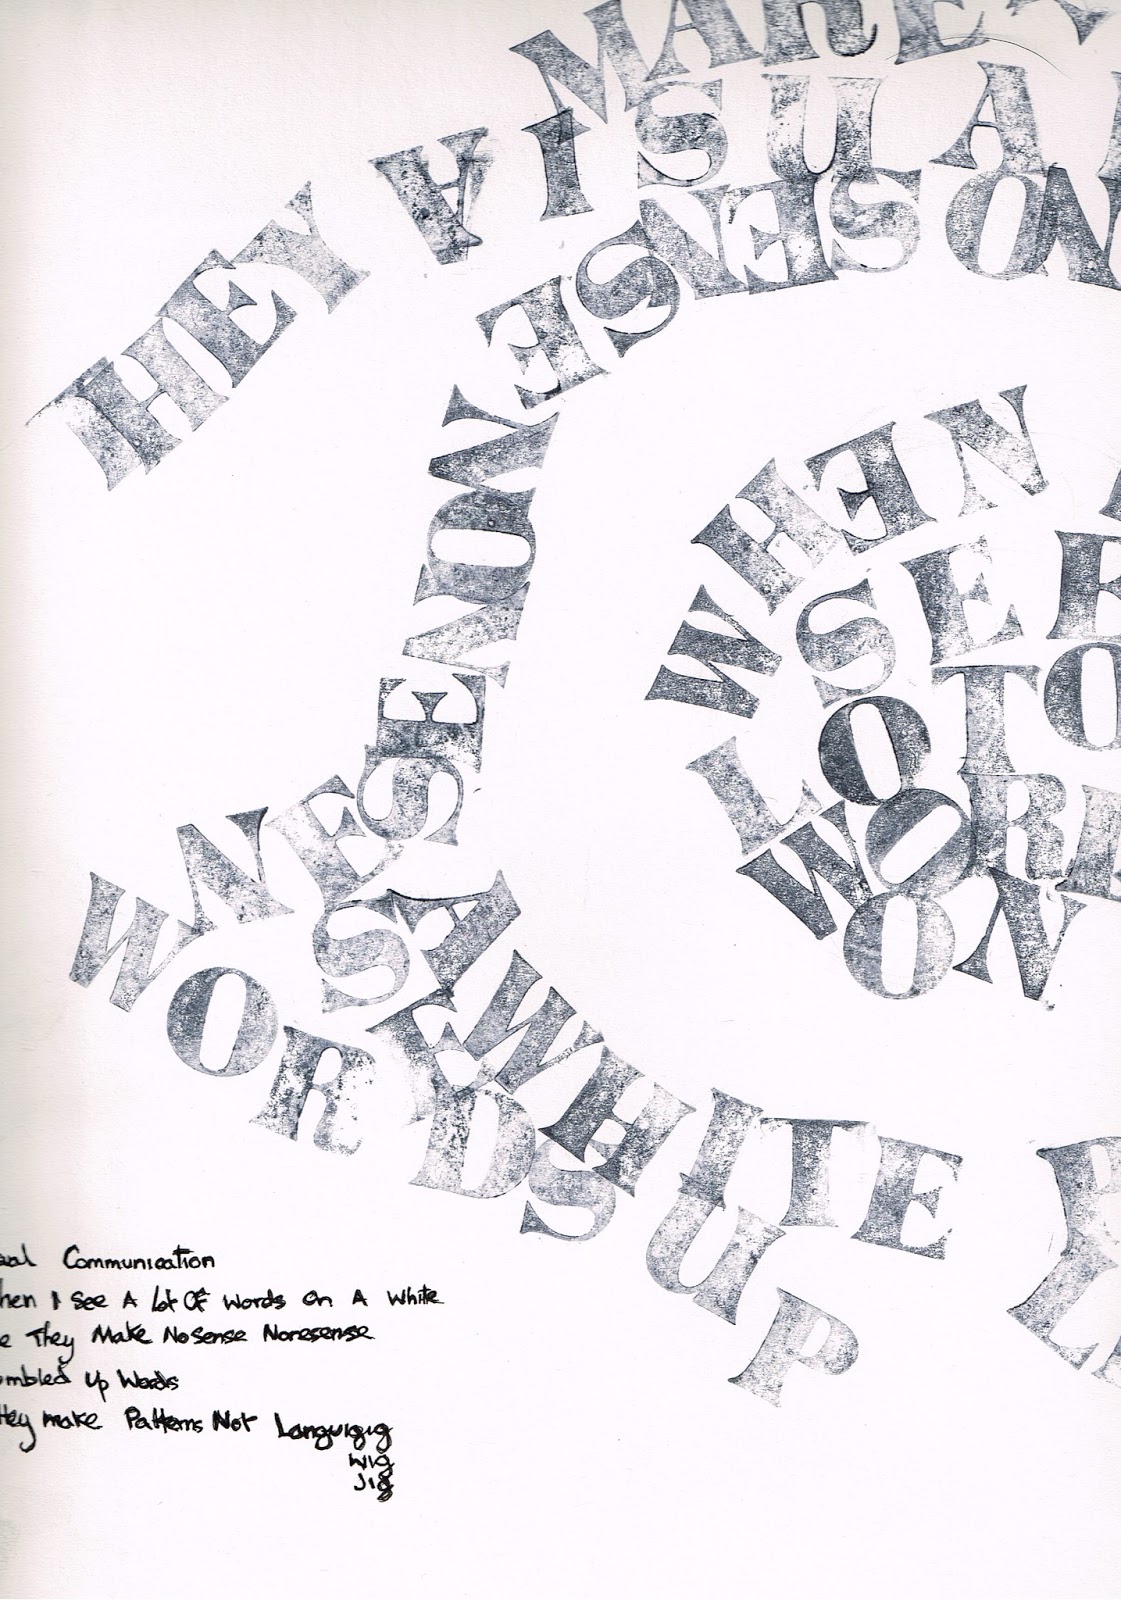 MAKE
HEY
A
I SUA
NOSENSE
NONESE
WHEN
SE
L O T O
WOR
ON
A WHITE P
WORDS UP
ual Communication
hen I See A Lot OF Words On A White
e They Make NoSense Nonesense
mbled Up Words
they make Patterns Not Languigig
wig
Jig